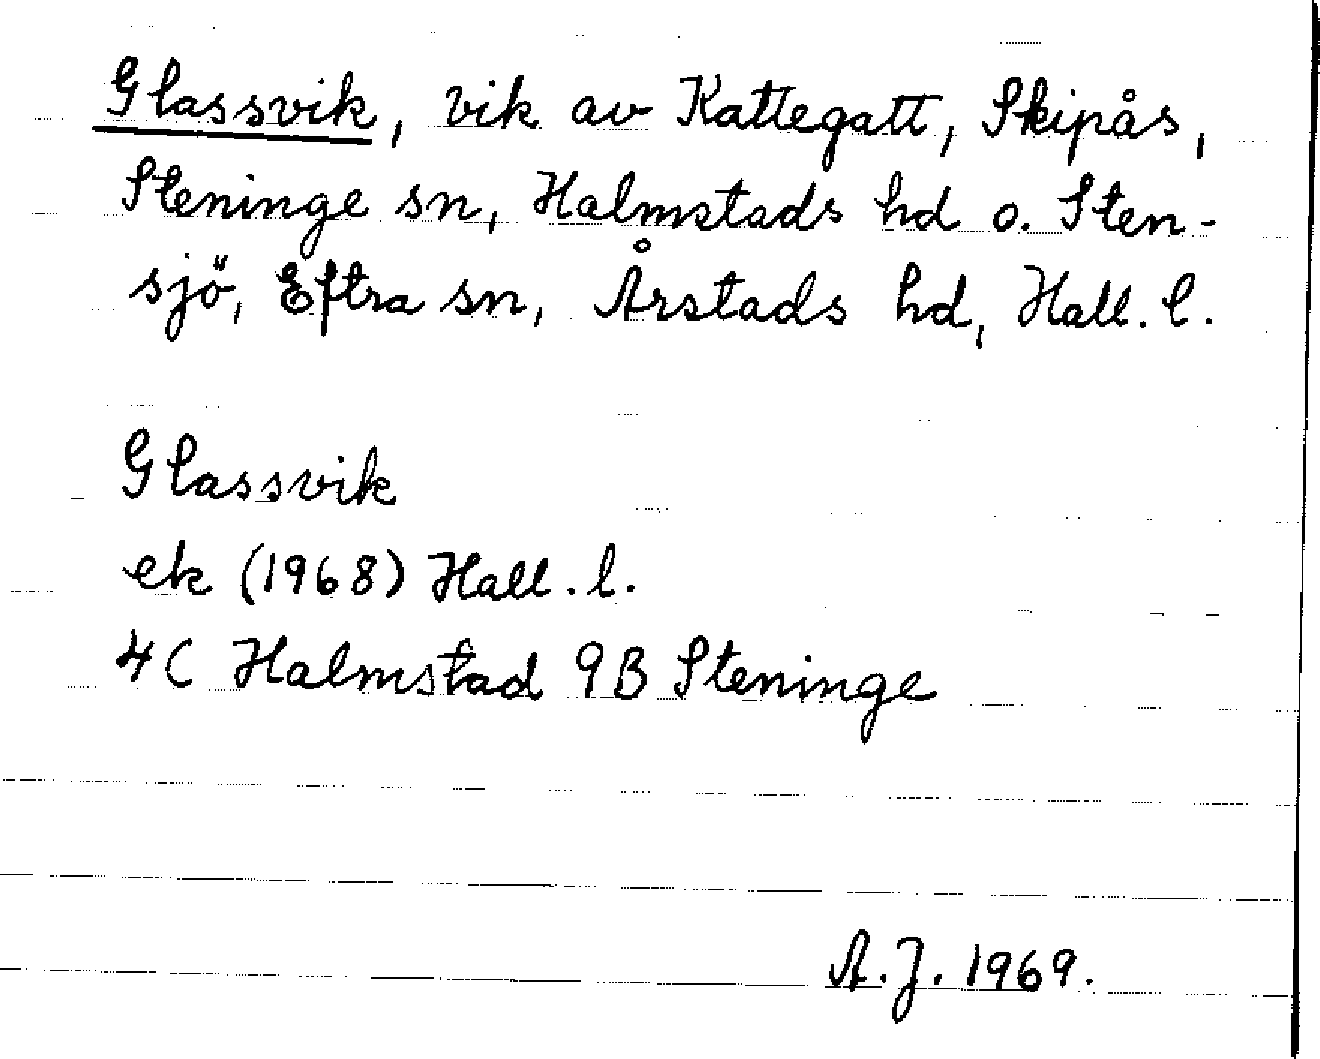 Glassvik, vik av Kattegatt, Skipås,
Steninge sn, Halmstads hd o. Sten-
sjö, Eftra sn, Årstads hd, Hall. l.
Glassvik
ek (1968) Hall. l.
4C Halmstad 9B Steninge
A.J. 1969.